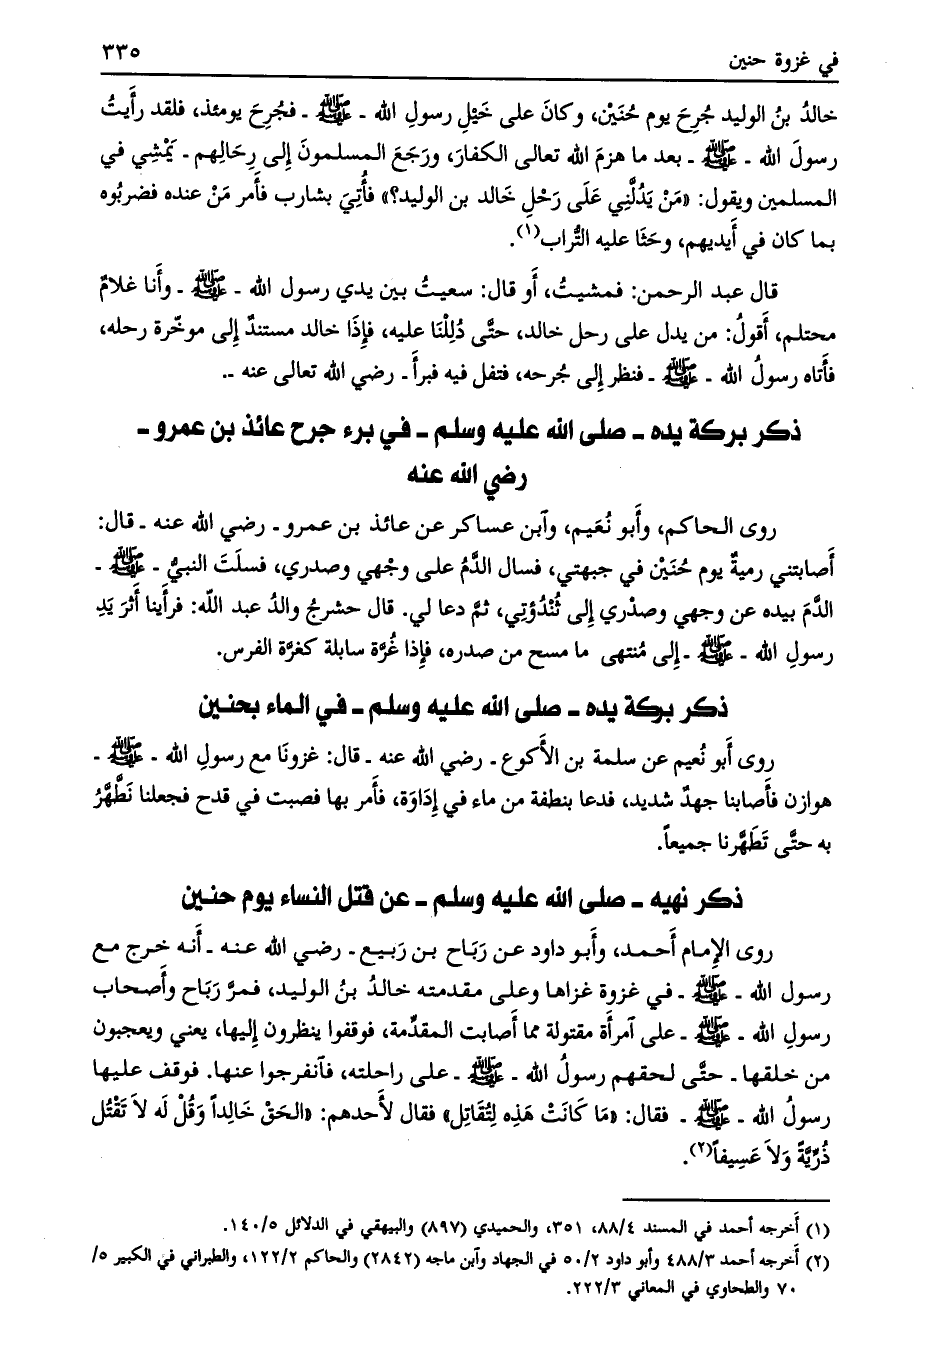 في غزوة حنين ٣٣٥
خالدُ بنُ الوليد جُرِحَ يوم حُنَيْن، وكانَ على خَيْلِ رسولِ الله ـ ﷺ ـ فجُرِحَ يومئذ، فلقد رأَيتُ
رسولَ الله ـ ﷺ ـ بعد ما هزمَ الله تعالى الكفارَ، ورجَعَ المسلمونَ إلى رِحَالِهم ـ يَمْشِي في
المسلمين ويقول: «مَنْ يَدُلُّنِي عَلَى رَحْلِ خَالد بن الوليد؟» فأُتِيَ بشارب فأَمر مَنْ عنده فضربُوه
بما كان في أَيديهم، وحَثَا عليه التُّراب(١).
قال عبد الرحمن: فمشيتُ، أَو قال: سعيتُ بين يدي رسول الله ـ ﷺ ـ وأَنا غلامٌ
محتلم، أَقولُ: من يدل على رحل خالد، حتَّى دُلِلْنَا عليه، فإِذَا خالد مستندٌ إِلى موخّرة رحله،
فأَتاه رسولُ الله ـ ﷺ ـ فنظر إِلى جُرحه، فتفل فيه فبرأَ ـ رضي الله تعالى عنه ـ.
ذكر بركة يده ـ صلى الله عليه وسلم ـ في برء جرح عائذ بن عمرو ـ
رضي الله عنه
روى الحاكم، وأَبو نُعَيم، وآبن عساكر عن عائذ بن عمرو ـ رضي الله عنه ـ قال:
أَصابتني رميةٌ يوم حُنَيْن في جبهتي، فسال الدَّمُ على وجْهي وصدري، فسلَتَ النبيُّ ـ ﷺ ـ
الدَّمَ بيده عن وجهي وصدْري إِلى ثُنْدُؤتِي، ثمَّ دعا لي. قال حشرجُ والدُ عبد الله: فرأَينا أَثرَ يَدِ
رسولِ الله ـ ﷺ ـ إِلى مُنتهى ما مسح من صدره، فإِذا غُرَّة سابلة كغرَّة الفرس.
ذكر بركة يده ـ صلى الله عليه وسلم ـ في الماء بحنين
روى أَبو نُعيم عن سلمة بن الأَكوع ـ رضي الله عنه ـ قال: غزونَا مع رسولِ الله ـ ﷺ ـ
هوازن فأَصابنا جهدٌ شديد، فدعا بنطفة من ماء في إِدَاوَة، فأَمر بها فصبت في قدح فجعلنا نَطَّهَّرُ
به حتَّى تَطَهَّرنا جميعاً.
ذكر نهيه ـ صلى الله عليه وسلم ـ عن قتل النساء يوم حنين
روى الإِمام أَحمد، وأَبو داود عن رَبَاح بن رَبيع ـ رضي الله عنه ـ أَنه خرج مع
رسول الله ـ ﷺ ـ في غزوة غزاها وعلى مقدمته خالدُ بنُ الوليد، فمرَّ رَبَاح وأَصحاب
رسولِ الله ـ ﷺ ـ على آمرأَة مقتولة مما أَصابت المقدِّمة، فوقفوا ينظرون إِليها، يعني ويعجبون
من خلقها ـ حتَّى لحقهم رسولُ الله ـ ﷺ ـ على راحلته، فآنفرجوا عنها. فوقف عليها
رسولُ الله ـ ﷺ ـ فقال: «مَا كَانَتْ هَذِه لِتُقَاتِل» فقال لأَحدهم: «الحَقْ خَالِداً وَقُلْ لَه لاَ تَقْتُل
ذُرِّيَّةً وَلاَ عَسِيفاً»(٢).
(١) أخرجه أحمد في المسند ٨٨/٤، ٣٥١، والحميدي (٨٩٧) والبيهقي في الدلائل ١٤٠/٥.
(٢) أخرجه أحمد ٤٨٨/٣ وأبو داود ٥٠/٢ في الجهاد وآبن ماجه (٢٨٤٢) والحاكم ١٢٢/٢، والطبراني في الكبير ٥/
٧٠ والطحاوي في المعاني ٢٢٢/٣.